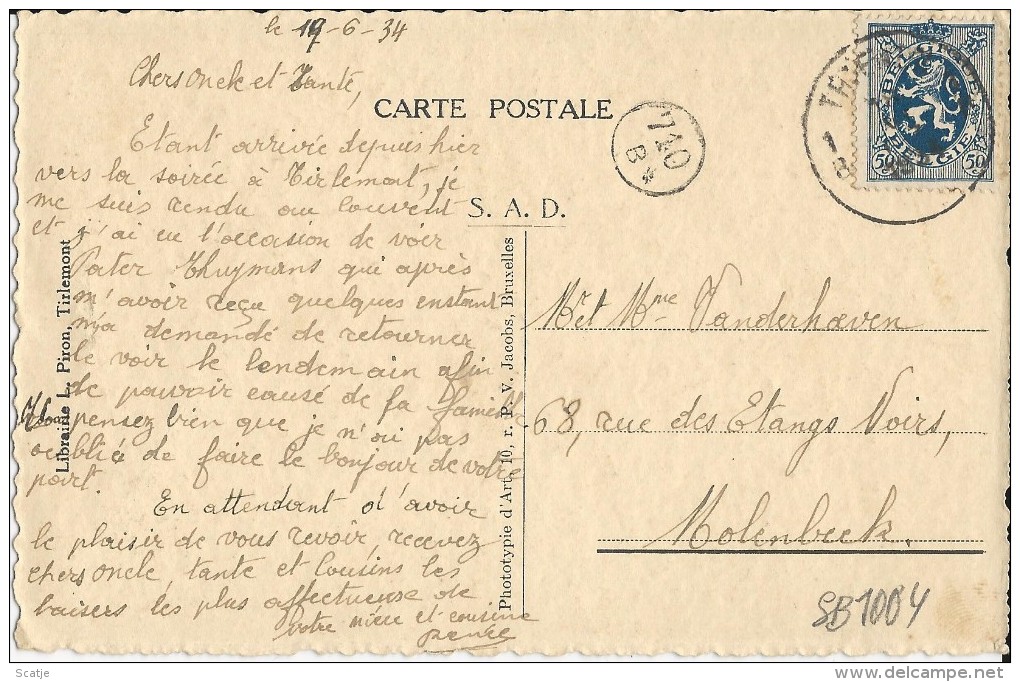 le 19-6-34
Chers Oncle et Tante,
CARTE POSTALE
Etant arrivée depuis hier
vers la soirée à Tirlemont, je
me suis rendu au Couvent
et j'ai eu l'occasion de voir
Pater Thuymans qui après
m'avoir reçu quelques enstant
m'a demandé de retourner
le voir le lendemain afin
de pouvoir causé de la famille
pensez bien que je n'ai pas
oublié de faire le bonjour de votre
part.
En attendant d'avoir
le plaisir de vous revoir, recevez
chers oncle, tante et Cousins les
baisers les plus affectueuse de
votre nièce et cousine
S. A. D.
Librairie L. Piron, Tirlemont
Phototypie d'Art, 10, r. P. V. Jacobs, Bruxelles
710
B
*
BELGIQUE
BELGIE
50 50
Mr et Mme Vanderhaeven
68, rue des Etangs Noirs,
Molenbeek.
SB1004
Scatje
www.delcampe.net